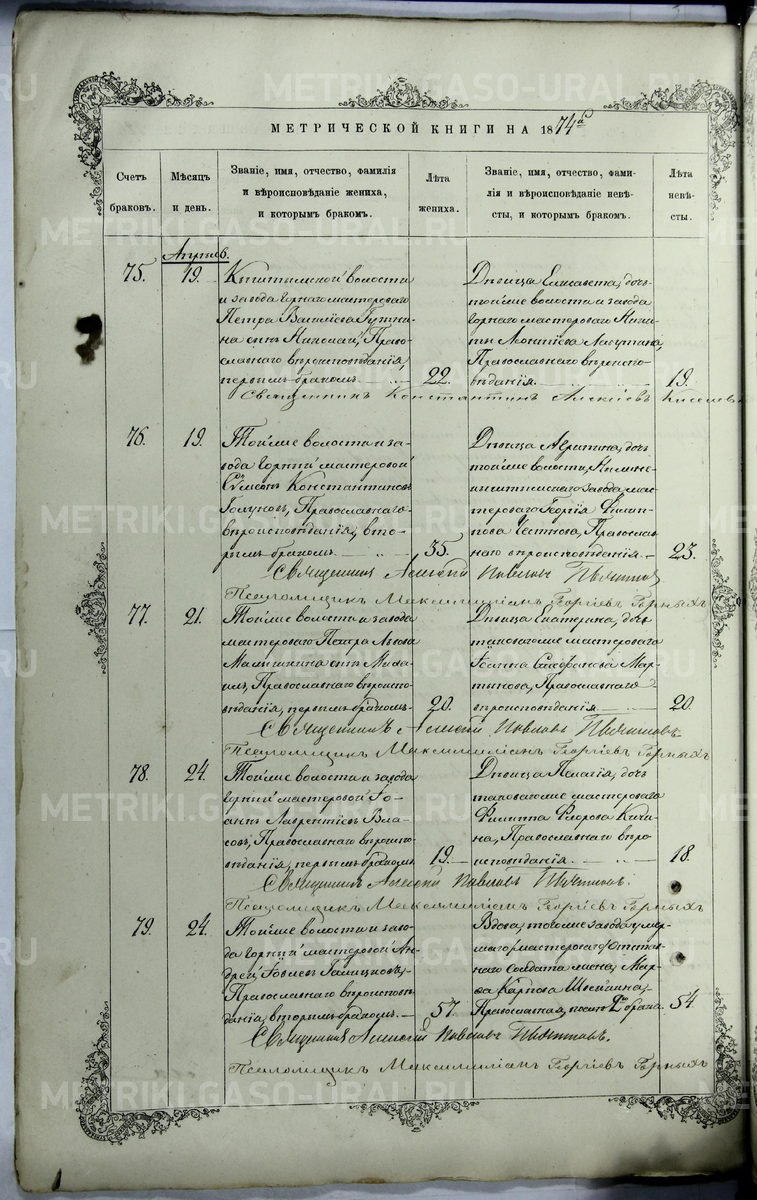 МЕТРИЧЕСКОЙ КНИГИ НА 1874й
Счетъ браковъ.
Мѣсяцъ и день.
Званіе, имя, отчество, фамилія
и вѣроисповѣданіе жениха,
и которымъ бракомъ.
Лѣта
жениха.
Званіе, имя, отчество, фами-
лія и вѣроисповѣданіе невѣ-
сты, и которымъ бракомъ.
Лѣта
невѣ-
сты.
75.
19.
Кыштымской волости
и завода горнаго мастероваго
Петра Василіева
сынъ Николай, Право-
славнаго вѣроисповѣданія,
первымъ бракомъ
22.
Дѣвица Елисавета, дочь
той же волости и завода
горнаго мастероваго Ники-
ты
Православнаго вѣроиспо-
вѣданія.
19.
Священникъ Константинъ Алексіевъ Киселевъ
76.
19.
Той же волости и за-
вода горный мастеровой
Сѵмеонъ Константиновъ
Голуновъ, Православнаго
вѣроисповѣданія, вто-
рымъ бракомъ
35.
Дѣвица дочь
той же волости,
завода мас-
тероваго Георгія Филип-
пова Православ-
наго вѣроисповѣданія.
23.
Священникъ Алексій Павловъ
Псаломщикъ Максимиліанъ Георгіевъ Горныхъ
77.
21.
Той же волости и завода
мастероваго Петра Львова
Малышкина сынъ Миха-
илъ, Православнаго вѣроиспо-
вѣданія, первымъ бракомъ
20.
Дѣвица Екатерина, дочь
таковаго же мастероваго
Іоанна Мар-
тынова, Православнаго
вѣроисповѣданія.
20.
Священникъ Алексій Павловъ
Псаломщикъ Максимиліанъ Георгіевъ Горныхъ
78.
24.
Той же волости и завода
горный мастеровой Іо-
аннъ Лаврентіевъ Вла-
совъ, Православнаго вѣроиспо-
вѣданія, первымъ бракомъ
19.
Дѣвица Пелагія, дочь
таковаго же мастероваго
Филиппа Ѳедорова Кичи-
на, Православнаго вѣро-
исповѣданія.
18.
Священникъ Алексій Павловъ
Псаломщикъ Максимиліанъ Георгіевъ Горныхъ
79.
24.
Той же волости и заво-
да горный мастеровой Ан-
дрей Іовлевъ Галицковъ,
Православнаго вѣроисповѣ-
данія, вторымъ бракомъ
57.
Вдова, того же завода умер-
шаго мастероваго
наго Солдата жена, Мар-
ѳа Карпова
Православная, послѣ брака.
54.
Священникъ Алексій Павловъ
Псаломщикъ Максимиліанъ Георгіевъ Горныхъ
METRIKI.GASO-URAL.RU